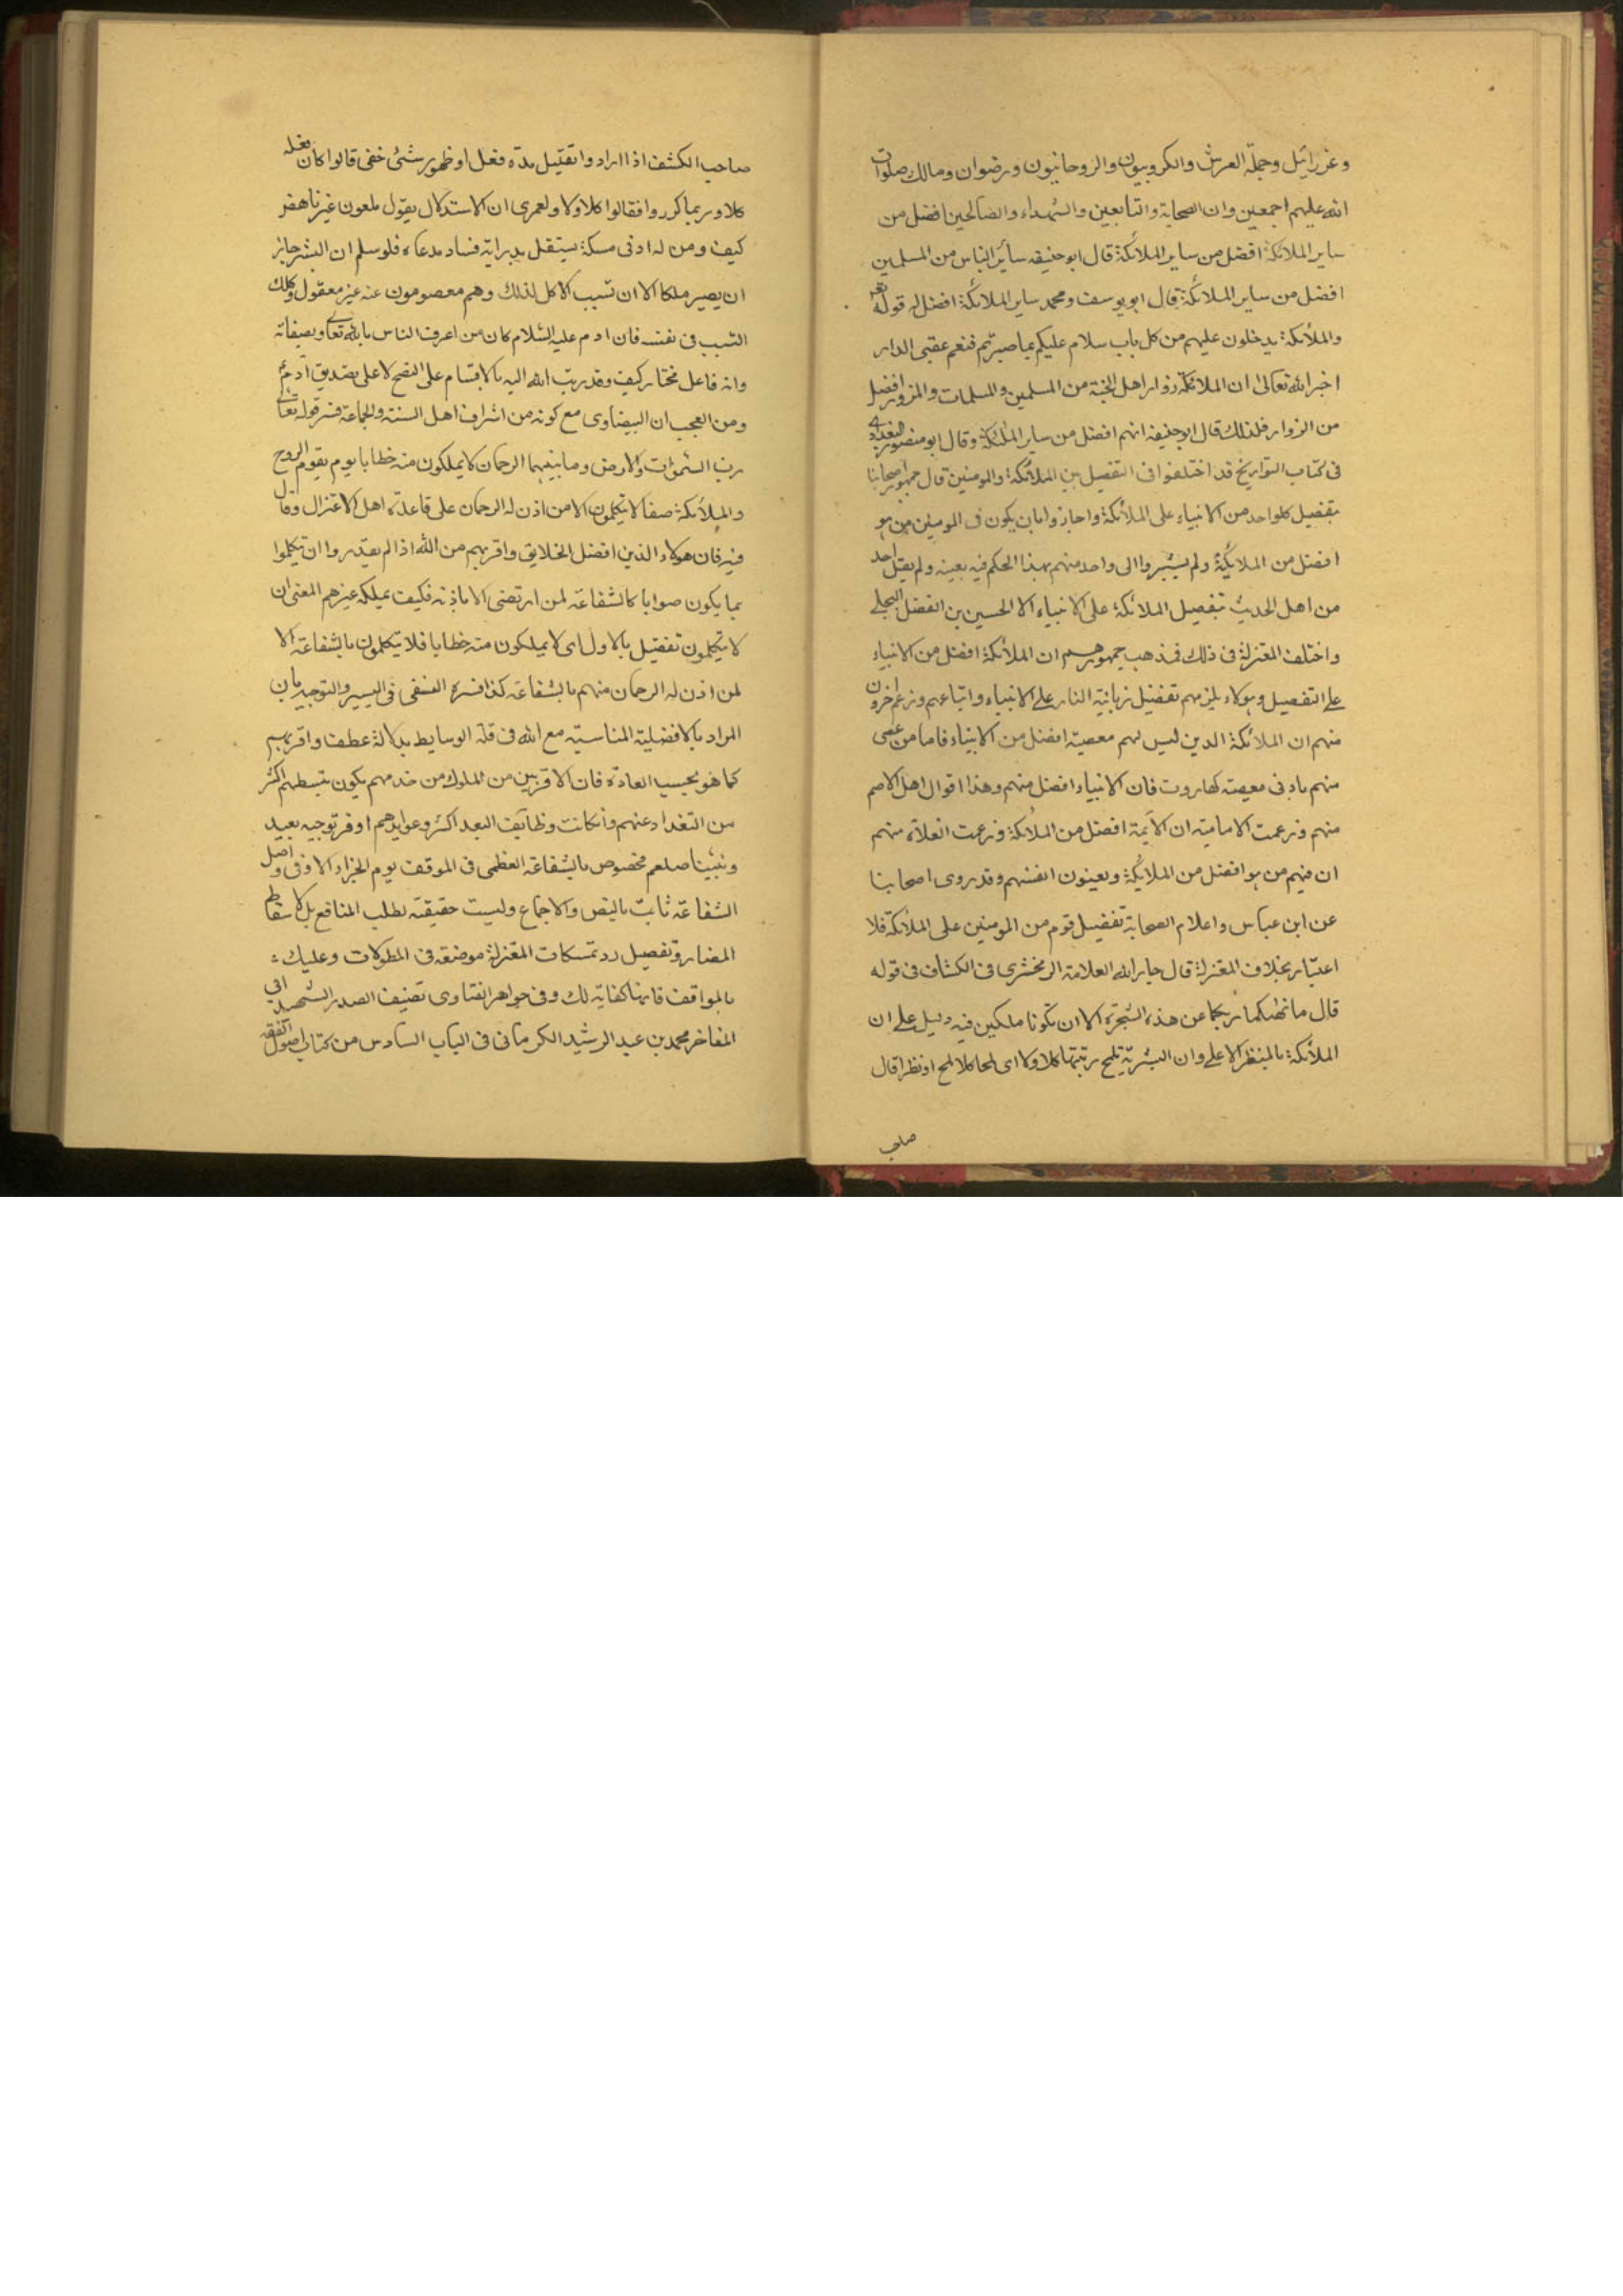 وعزرائيل وحملة العرش والكروبيون والروحانيون ورضوان ومالك صلوات
الله عليهم اجمعين وان الصحابة والتابعين والشهداء والصالحين افضل من
ساير الملائكة افضل من ساير الملائكة قال ابو حنيفه سائر الناس من المسلمين
افضل من ساير الملائكة قال ابو يوسف ومحمد ساير الملائكة افضل له قوله تعم
والملائكة يدخلون عليهم من كل باب سلام عليكم بما صبرتم فنعم عقبى الدار
اخبر الله تعالى ان الملائكة زوار اهل الجنة من المسلمين والمسلمات والمزور افضل
من الزوار فلذلك قال ابو حنيفه انهم افضل من ساير الملئكة وقال ابو منصور البغدادى
فى كتاب التواريخ قد اختلفوا فى التفضيل بين الملائكة والمومنين قال جمهور اصحابنا
بتفضيل كلواحد من الانبياء على الملائكة واجازوا بان يكون فى المومنين من هو
افضل من الملايكة ولم يشيروا الى واحد منهم بهذا الحكم فيه بعينه ولم يقل احد
من اهل الحديث بتفضيل الملائكة على الانبياء الا الحسين بن الفضل البجلى
واختلف المعتزلة فى ذلك فمذهب جمهورهم ان الملائكة افضل من الانبياء
على التفصيل وهولاء يلزمهم تفضيل زبانية النار على الانبياء واتباعهم وزعم اخرون
منهم ان الملائكة الذين ليس لهم معصية افضل من الانبياء فاما من عصى
منهم بادنى معصية كهاروت فان الانبياء افضل منهم وهذا اقوال اهل الاصم
منهم وزعمت الامامية ان الايمة افضل من الملائكة وزعمت الغلاة منهم
ان فيهم من هو افضل من الملايكة ويعينون انفسهم وقد روى اصحابنا
عن ابن عباس واعلام الصحابة تفضيل قوم من المومنين على الملائكة فلا
اعتبار بخلاف المعتزلة قال جار الله العلامة الزمخشرى فى الكشاف فى قوله
قال ما نهاكما ربكما عن هذه الشجرة الا ان تكونا ملكين فيه دليل على ان
الملائكة بالمنظر الاعلى وان البشرية تلمح رتبتها كلا ولا اى لمحا كلا لمح او نظر اقال
صاحب
صاحب الكشف اذا ارادوا تقليل مدة فعل او ظهور شئ خفى قالوا كان فعله
كلا وربما كرروا فقالوا كلا ولا ولعمرى ان الاستدلال بقول ملعون غير ناهض
كيف ومن له ادنى مسكة يستقل بدراية فساد مدعاه فلو سلم ان البشر جايز
ان يصير ملكا الا ان تسبب الاكل لذلك وهم معصومون عنه غير معقول وكذلك
السبب فى نفسه فان ادم عليه السلام كان من اعرف الناس بالله تعالى وبصفاته
وانه فاعل مختار كيف وقد رتب الله اليه بالاقسام على النصح لا على تصديق ادم
ومن العجب ان البيضاوى مع كونه من اشراف اهل السنة والجماعة فسر قوله تعالى
رب السموات والارض وما بينهما الرحمان لا يملكون منه خطابا يوم يقوم الروح
والملائكة صفا لا يتكلمون الا من اذن له الرحمان على قاعدة اهل الاعتزال وقال
فيه فان هولاء الذين افضل الخلايق واقربهم من الله اذا لم يقدروا ان يتكلموا
بما يكون صوابا كالشفاعة لمن ارتضى الا باذنه فكيف يملكه غيرهم المعنى ان
لا يتكلمون تفضيل بالاول اى لا يملكون منه خطابا فلا يتكلمون بالشفاعة الا
لمن اذن له الرحمان منهم بالشفاعة كذا فسره النسفى فى اليسير والتوجيه بان
المراد بالافضلية المناسبة مع الله فى قلة الوسايط بدلالة عطف واقربهم
كما هو بحسب العادة فان الاقربين من الملوك من خدمهم يكون تبسطهم اكثر
من التغداد عنهم وانكانت وظائف البعد اكثر وعوايدهم اوفر توجيه بعيد
ونبينا صلعم مخصوص بالشفاعة العظمى فى الموقف يوم الجزاء الاوفى واصل
الشفاعة ثابت بالنص والاجماع وليست حقيقته لطلب المنافع بل لاسقاط
المضار وتفصيل رد تمسكات المعتزلة موضعه فى المطولات وعليك
بالمواقف فانها كفاية لك وفى جواهر الفتاوى تصنيف الصدر الشهيد ابى
المفاخر محمد بن عبد الرشيد الكرمانى فى الباب السادس من كتاب اصول الفقه